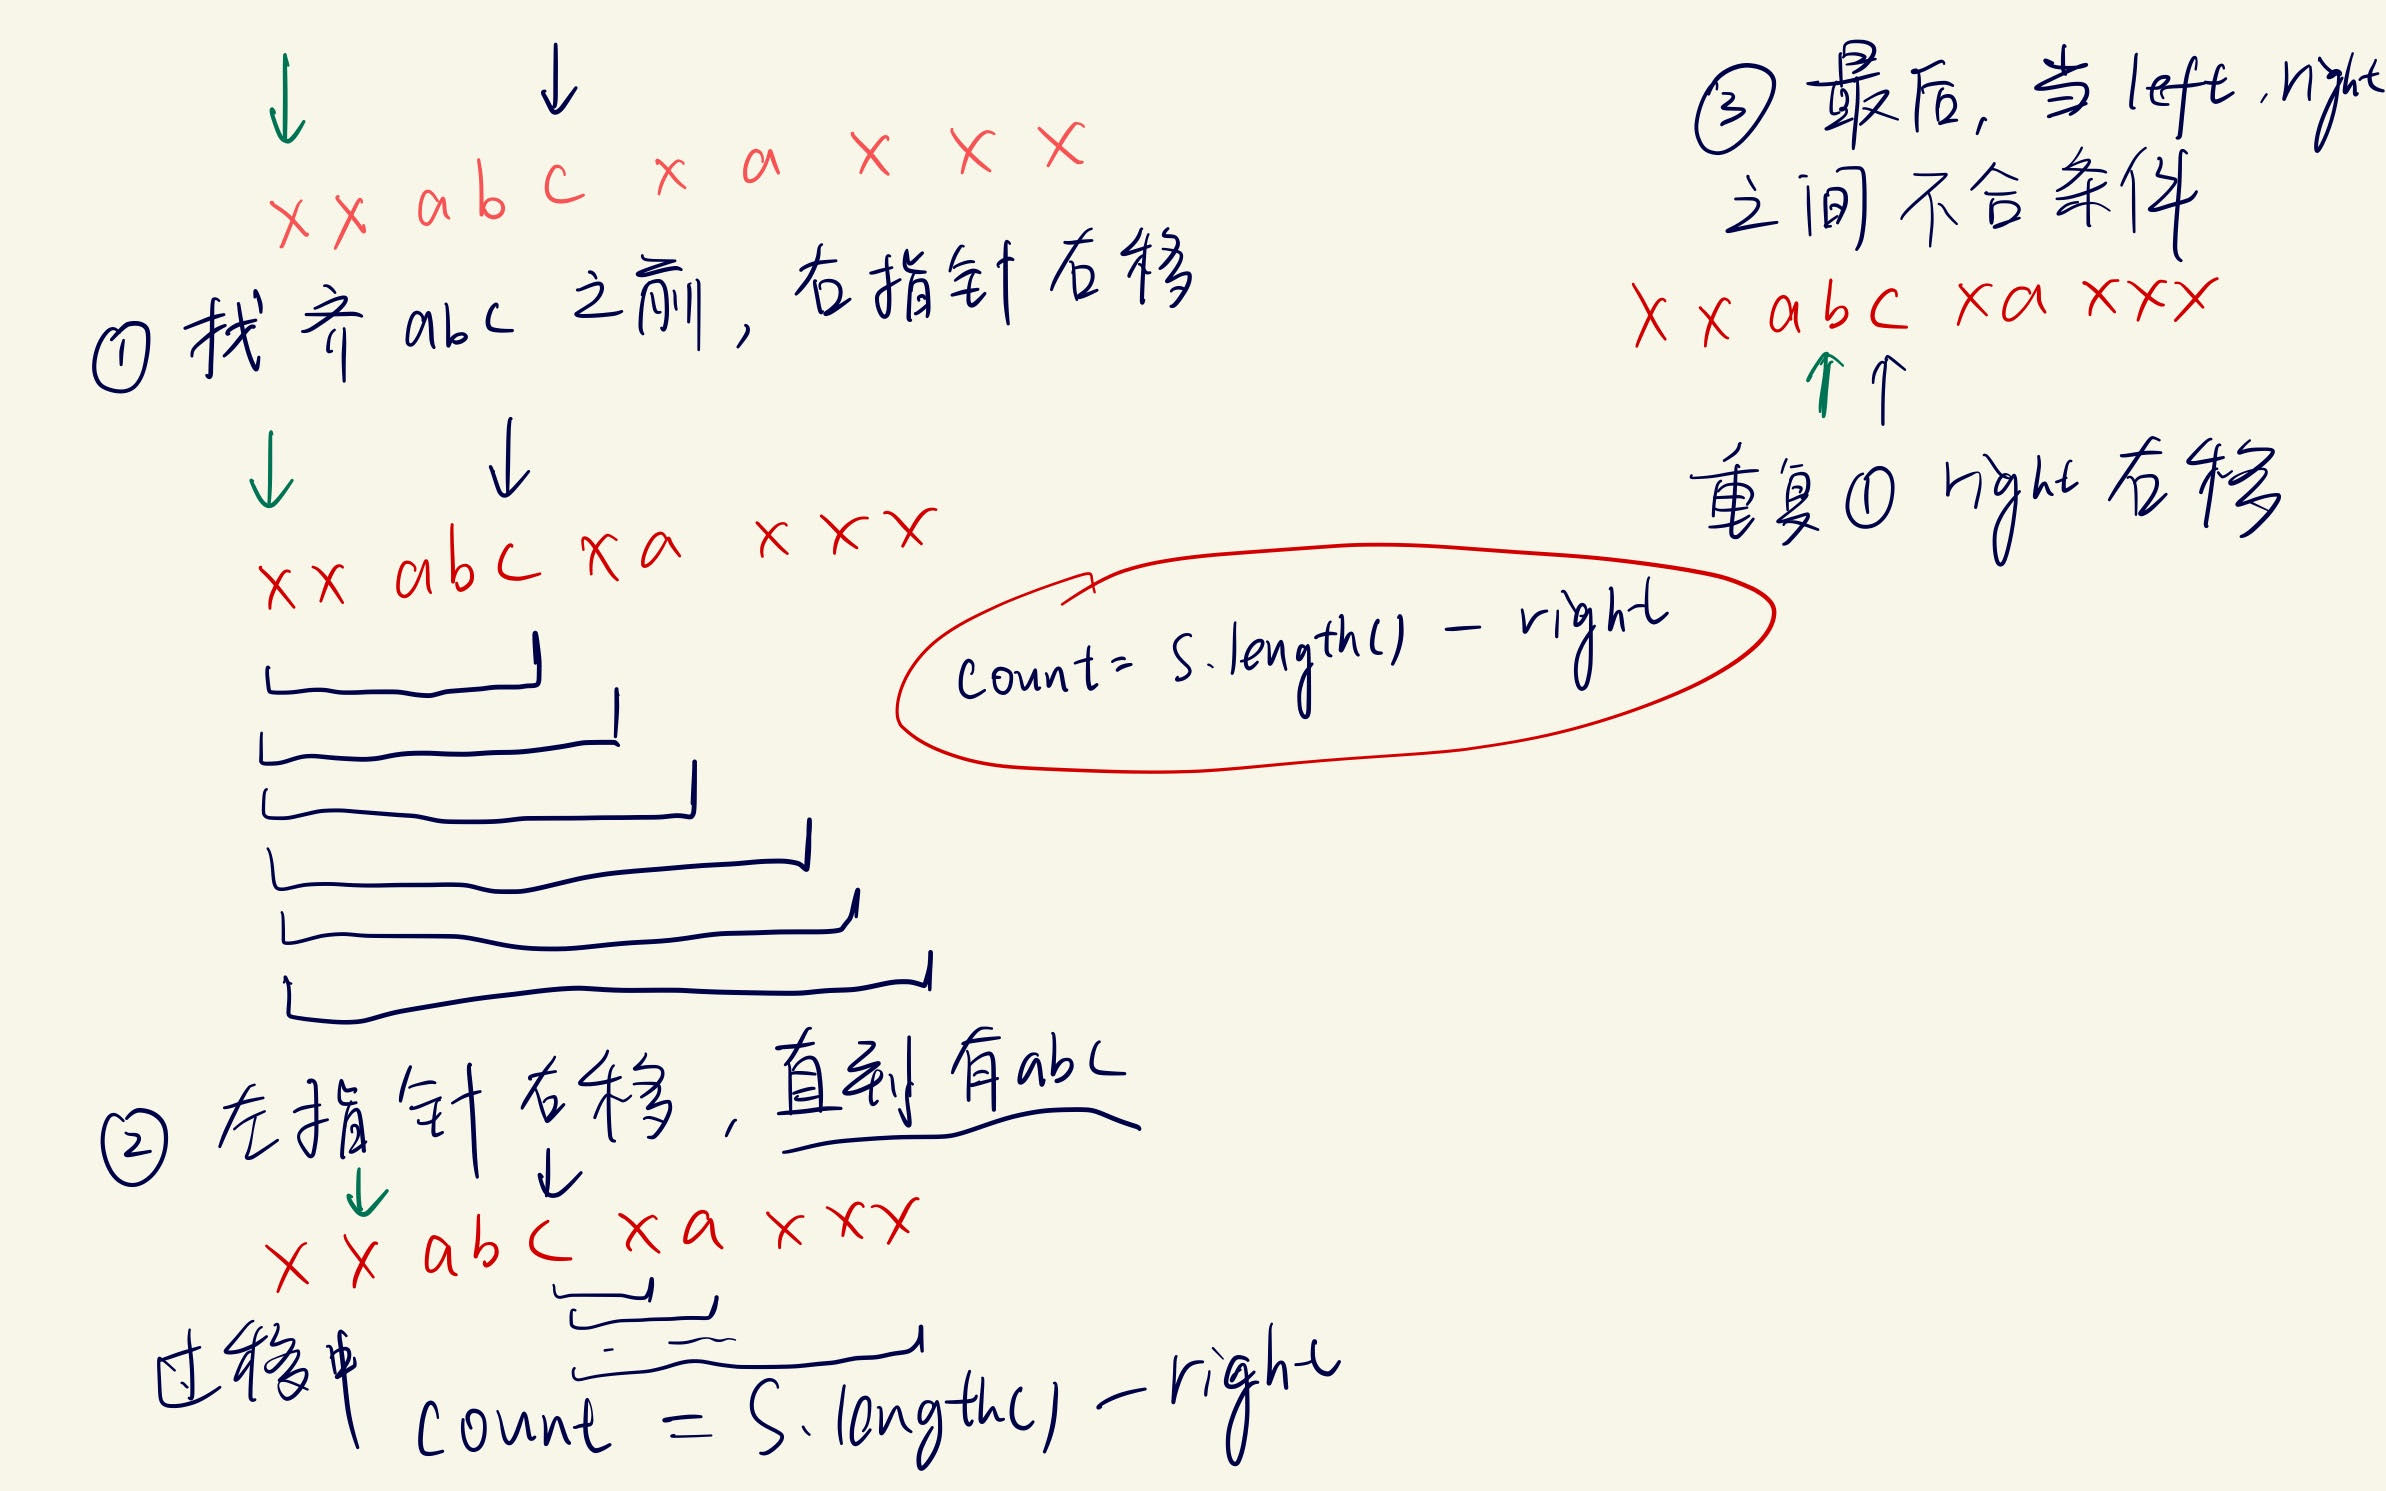 x x a b c x a x x x
① 找齐 abc 之前, 右指针右移
x x a b c x a x x x
count = S.length() - right
② 左指针右移, 直到有abc
x x a b c x a x x x
过程中
count = S.length() - right
③ 最后, 当 left, right
之间不合条件
x x a b c x a x x x
重复① right 右移